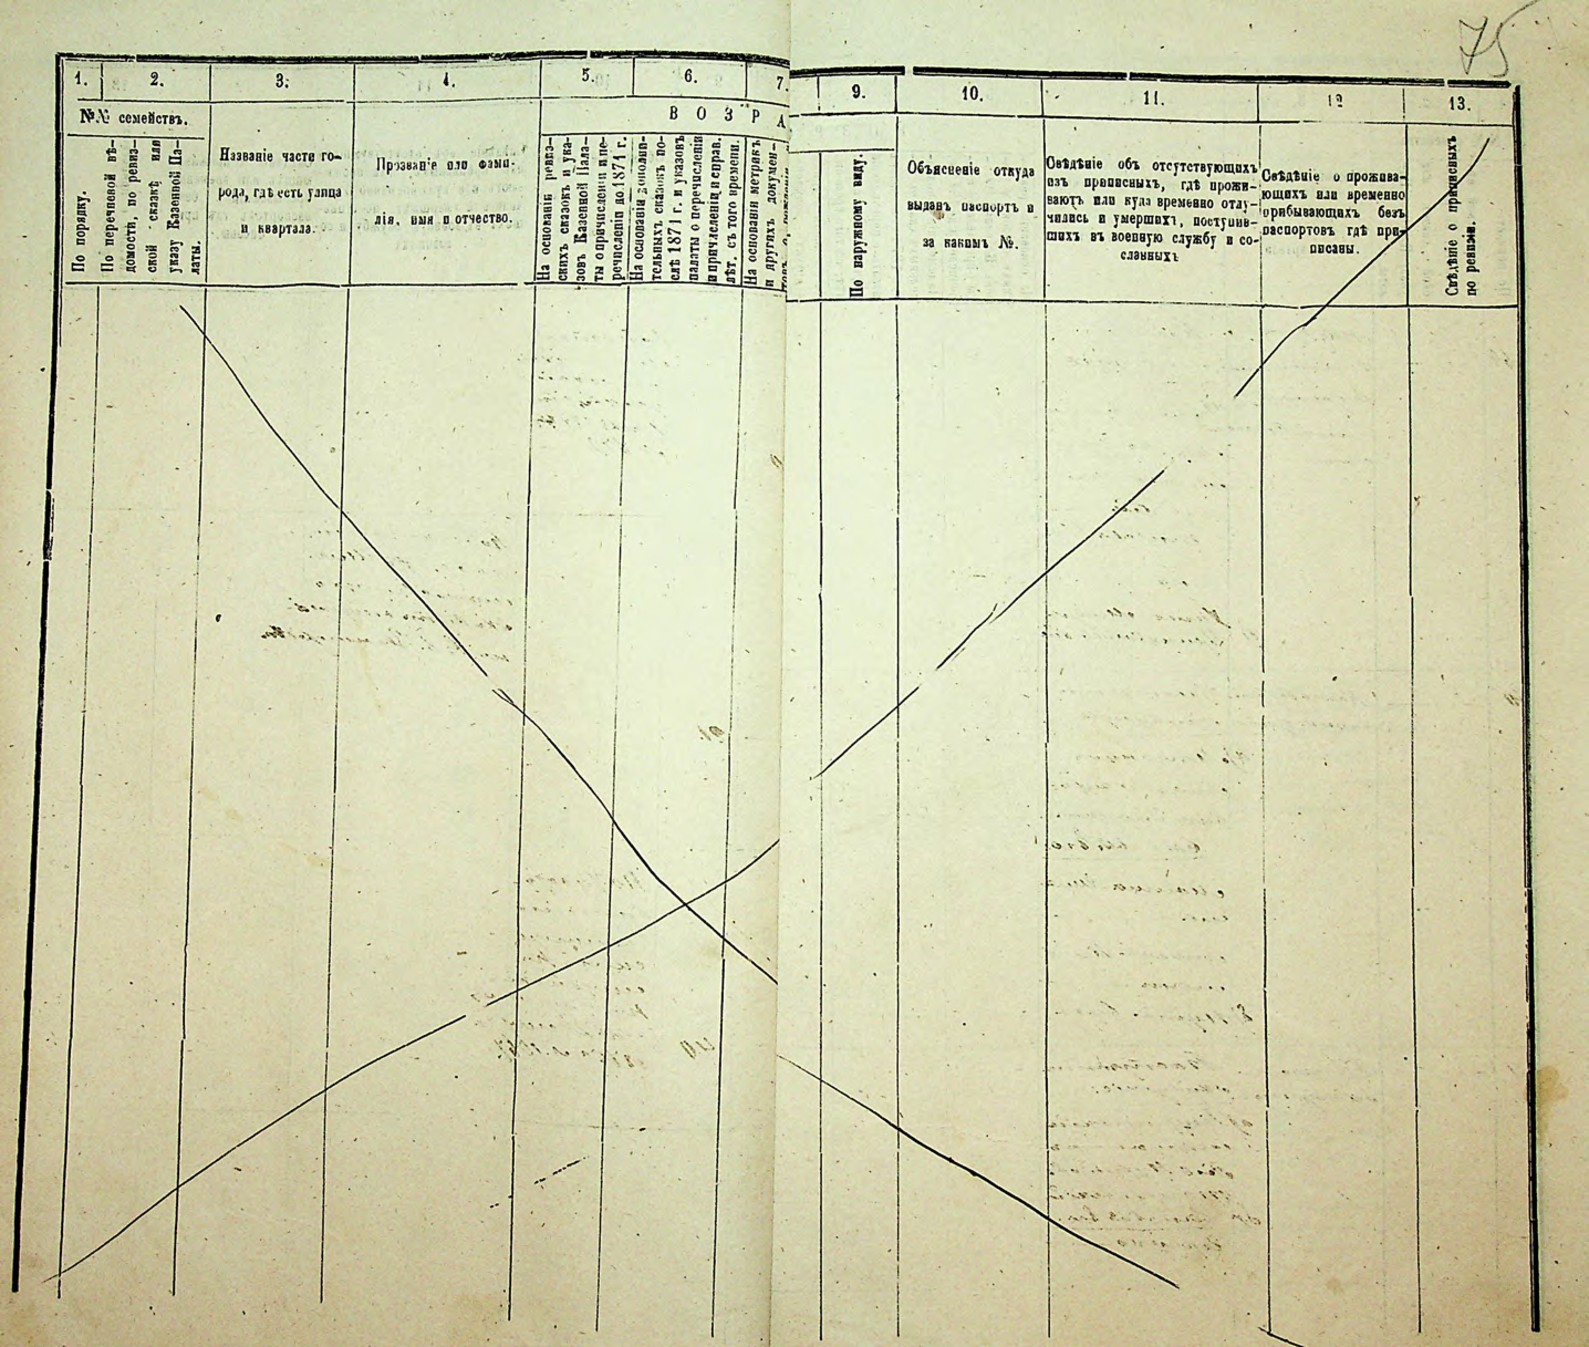 75
1. 2. 3. 4. 5. 6. 7. 9. 10. 11. 12 13.
№№ семействъ.
ВОЗРА
По порядку.
По перечневой вѣ-
домости, по ревиз-
ской сказкѣ или
указу Казенной Па-
латы.
Названіе части го-
рода, гдѣ есть улица
и квартала.
Прозваніе или фами-
лія, имя и отчество.
На основаніи ревиз-
скихъ сказокъ и ука-
зовъ Казенной Пала-
ты о причисленіи и пе-
речисленіи до 1871 г.
На основаніи дополни-
тельныхъ сказокъ по-
слѣ 1871 г. и указовъ
палаты о перечисленіи
и причисленіи и справ.
лѣт. съ того времени.
На основаніи метрикъ
и другихъ докумен-
По наружному виду.
Объясненіе откуда
выданъ паспортъ и
за какимъ №.
Свѣдѣніе объ отсутствующихъ
изъ приписныхъ, гдѣ прожи-
ваютъ или куда временно отлу-
чились и умершихъ, поступив-
шихъ въ военную службу и со-
сланныхъ
Свѣдѣніе о прожива-
ющихъ или временно
прибывающихъ безъ
паспортовъ гдѣ при-
писаны.
Свѣдѣніе о приписныхъ
по ревизіи.